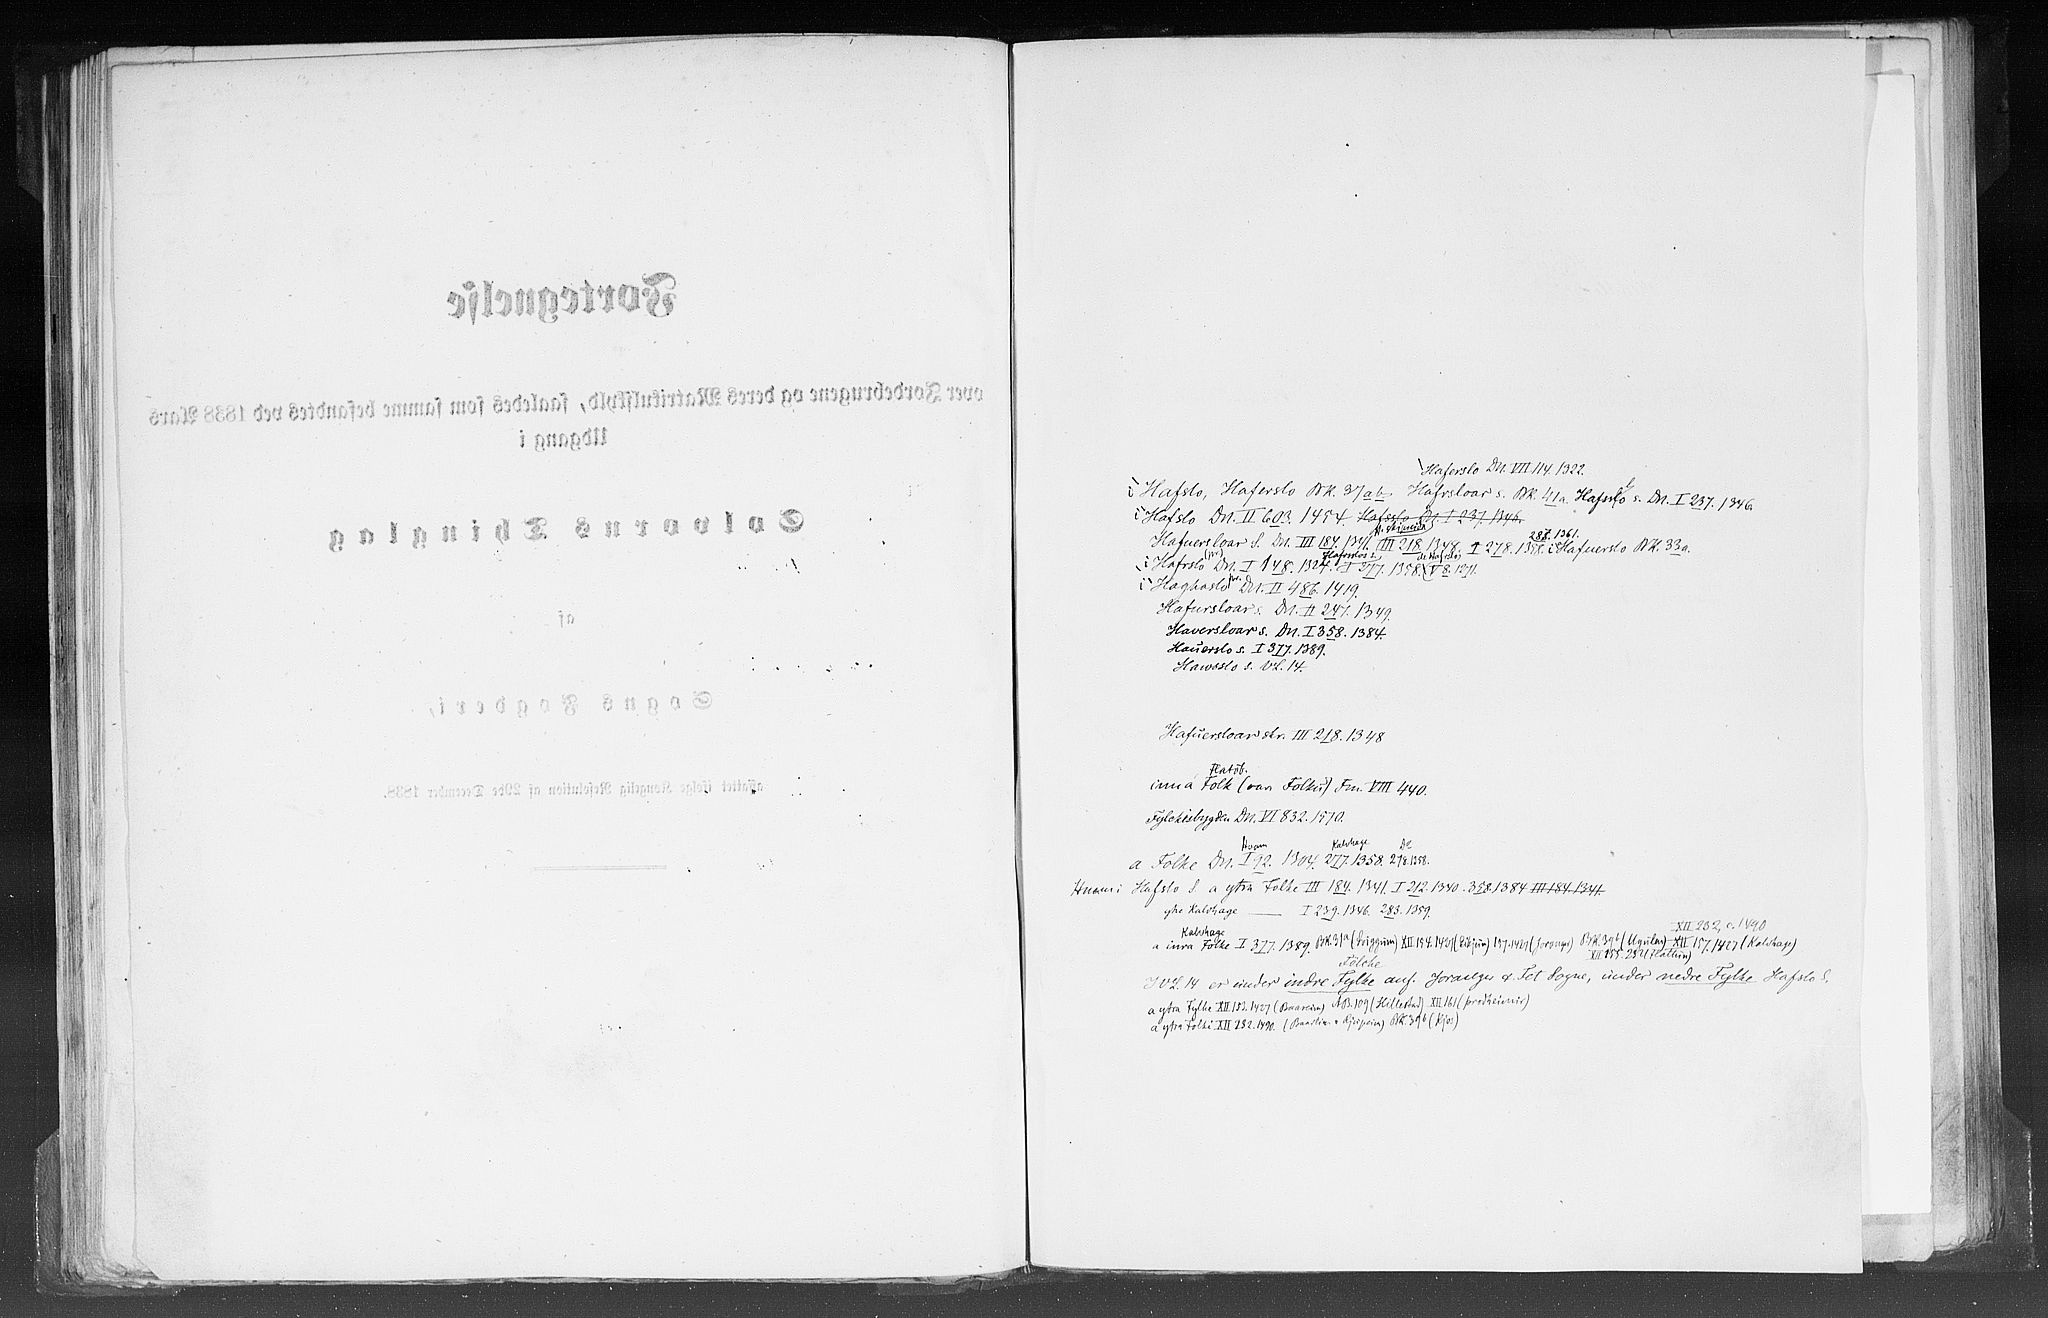 Fortegnelse
over Jordebrugene og deres Matrikulskyld, saaledes som samme befandtes ved 1838 Aars
Udgang i
Solvorns Thinglag
af
Sogns Fogderi,
affattet ifølge Kongelig Resolution af 29de December 1838.
Haferslo Dn. VII 114. 1322.
i Hafslo, Haferslo BK. 37ab. Hafrsloar s. BK. 41a. Hafsslo s. Dn. I 237. 1346.
i Hafslo Dn. II 603. 1454. Hafsslo Dn. I 237. 1346.
288. 1361.
Hafuersloar S. Dn. III 184. 1341. III 218. 1348. I 278. 1358. i Hafuerslo BK. 33a.
i Hafrslo Dn. I 148. 1324. I 277. 1358. V 8. 1271.
i Haghaslo Dn. II 486. 1419.
Hafursloar s. Dn. II 247. 1349.
Haversloar s. Dn. I 358. 1384.
Hauerslo s. I 377. 1389.
Hawsslo s. VL. 14.
Hafuersloar skr. III 218. 1348
Flatöb.
inn á Folk (var. Folku) Fm. VIII 440.
Fylckisbygden Dn. VI 832. 1570.
Kalshage
a Folke Dn. I 92. 1304. 277. 1358. 278. 1358.
Hafslo S. a ytra Folke III 184. 1341. I 212. 1340. 358. 1384 III 184. 1341.
Kalshage — I 239. 1346. 283. 1359.
XII 232, c. 1490
Kalshage
a inra Folke I 377. 1389. BK. 31a XII 154. 1427 157. 1427 BK. 39b XII 157. 1427 (Kalshage)
XII 155. 232
Folcke
I VL. 14 er under indre Fylke anf. Joranger & Fet Sogne, under nedre Fylke Hafslo S.
a ytra Fylke XII 152. 1427 AB. 109 (Hillestad) XII 161
a ytra Folki XII 232. 1490. BK. 39b (Kjos)